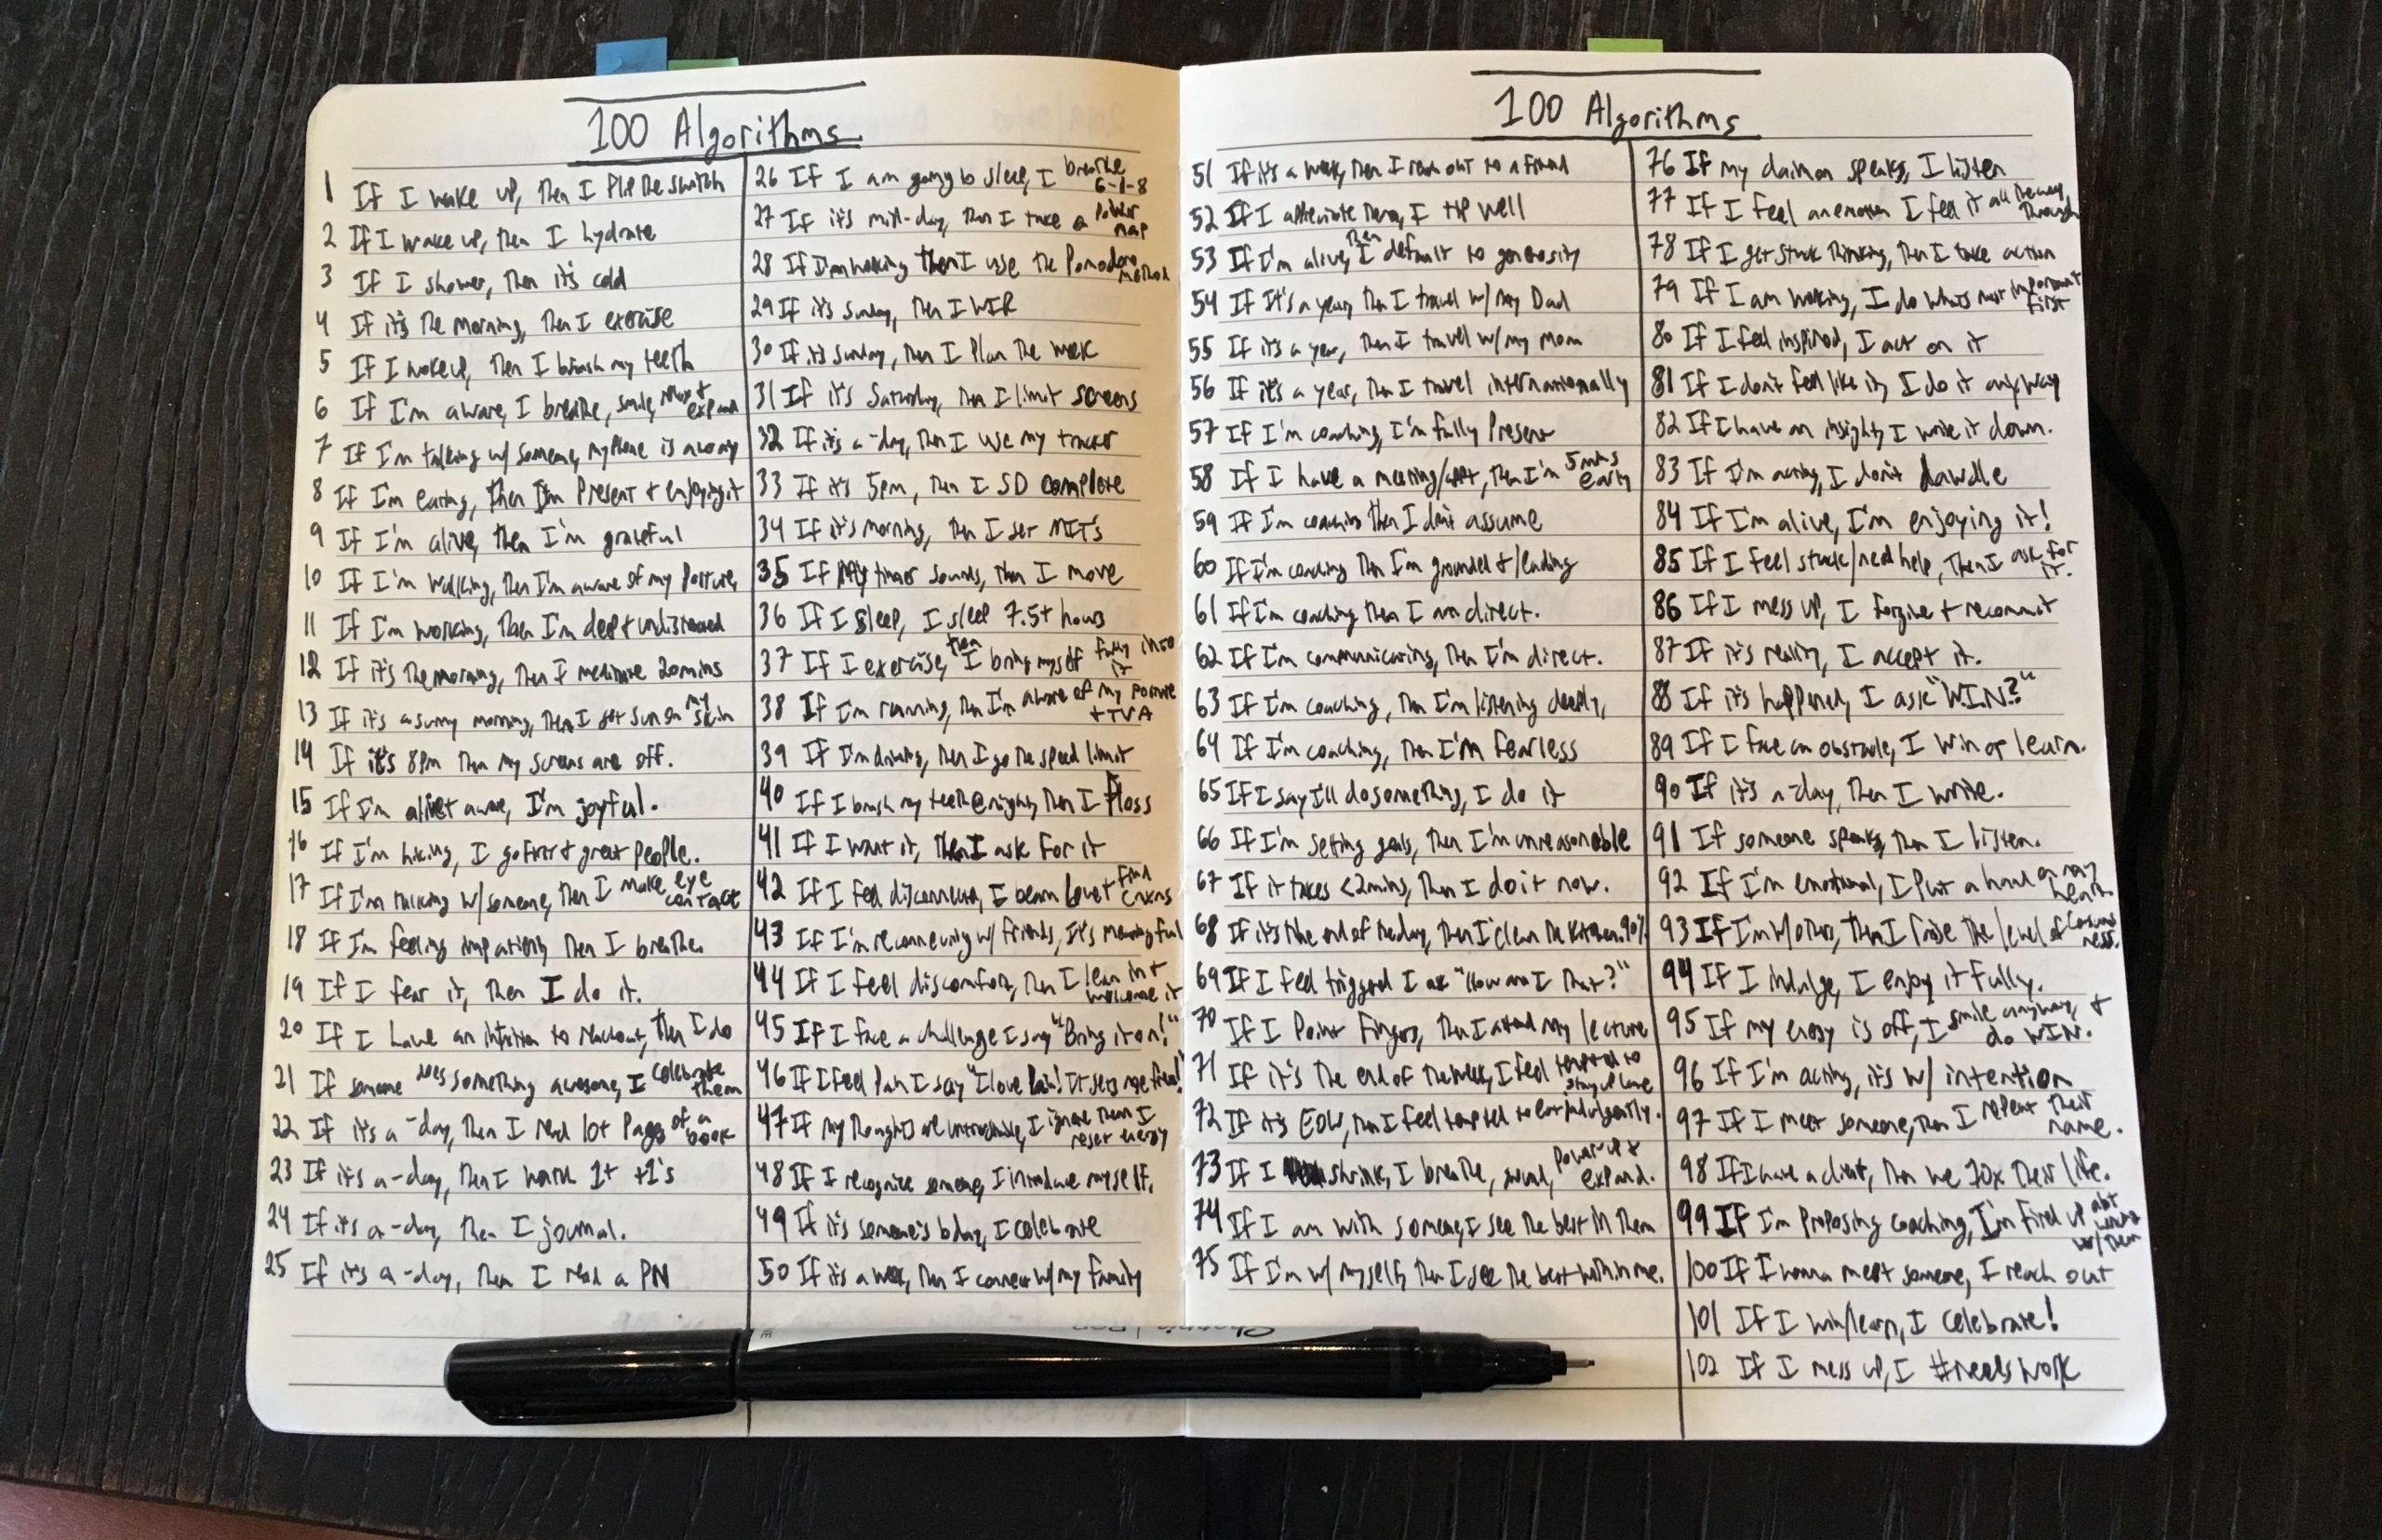 100 Algorithms
1 If I wake up, then I flip the switch
2 If I wake up, then I hydrate
3 If I shower, then it's cold
4 If it's the morning, then I exercise
5 If I wake up, then I brush my teeth
6 If I'm aware, I breathe, smile, relax + expand
7 If I'm talking w/ someone, my phone is away
8 If I'm eating, then I'm present + enjoying it
9 If I'm alive, then I'm grateful
10 If I'm walking, then I'm aware of my posture,
11 If I'm working, then I'm deep + undistracted
12 If it's the morning, then I meditate 20mins
13 If it's a sunny morning, then I get sun on my skin
14 If it's 8pm then my screens are off.
15 If I'm alive + aware, I'm joyful.
16 If I'm hiking, I go first + greet people.
17 If I'm talking w/ someone, then I make eye contact
18 If I'm feeling impatient, then I breathe.
19 If I fear it, then I do it.
20 If I have an intuition to reachout, then I do
21 If someone does something awesome, I celebrate them
22 If it's a -day, then I read 10+ pages of a book
23 If it's a -day, then I 1+ +1's
24 If it's a -day, then I journal.
25 If it's a -day, then I read a PN
26 If I am going to sleep, I breathe 6-1-8
27 If it's mid-day, then I take a power nap
28 If I'm working then I use the Pomodoro method
29 If it's Sunday, then I WIR
30 If it's Sunday, then I plan the week
31 If it's Saturday, then I limit screens
32 If it's a -day, then I use my tracker
33 If it's 5pm, then I SD complete
34 If it's morning, then I set MIT's
35 If my timer sounds, then I move
36 If I sleep, I sleep 7.5+ hours
37 If I exercise, then I bring myself fully into it
38 If I'm running, then I'm aware of my posture + TVA
39 If I'm driving, then I go the speed limit
40 If I brush my teeth @ night, then I floss
41 If I want it, then I ask for it
42 If I feel disconnected, I beam love + find
43 If I'm reconnecting w/ friends, it's meaningful
44 If I feel discomfort, then I lean in + welcome it
45 If I face a challenge I say "Bring it on!"
46 If I feel pain I say "I love pain! It sets me free!"
47 If my thoughts are untrustworthy, I ignore them I reset energy
48 If I recognize someone, I introduce myself.
49 If it's someone's bday, I celebrate
50 If it's a week, then I connect w/ my family
100 Algorithms
51 If it's a week, then I reach out to a friend
52 If I appreciate them, I tip well
53 If I'm alive, then I default to generosity
54 If It's a year, then I travel w/ my Dad
55 If it's a year, then I travel w/ my mom
56 If it's a year, then I travel internationally
57 If I'm coaching, I'm fully present
58 If I have a meeting/appt, then I'm 5 mins early
59 If I'm coaching then I don't assume
60 If I'm coaching then I'm grounded + leading
61 If I'm coaching then I am direct.
62 If I'm communicating, then I'm direct.
63 If I'm coaching, then I'm listening deeply,
64 If I'm coaching, then I'm fearless
65 If I say I'll do something, I do it
66 If I'm setting goals, then I'm unreasonable
67 If it takes <2mins, then I do it now.
68 If it's the end of the day, then I clean the kitchen. 90%
69 If I feel triggered I ask "How am I that?"
70 If I point fingers, then I attend my lecture
71 If it's the end of the week, I feel tempted to stay up late
72 If it's EOW, then I feel tempted to eat indulgently.
73 If I shrink, I breathe, stand, power-up + expand.
74 If I am with someone, I see the best in them
75 If I'm w/ myself, then I see the best within me.
76 If my daimon speaks, I listen
77 If I feel an emotion I feel it all the way through
78 If I get stuck thinking, then I take action
79 If I am working, I do what's most important first
80 If I feel inspired, I act on it
81 If I don't feel like it, I do it anyway
82 If I have an insight, I write it down.
83 If I'm acting, I don't dawdle
84 If I'm alive, I'm enjoying it!
85 If I feel stuck/need help, then I ask for it.
86 If I mess up, I forgive + recommit
87 If it's reality, I accept it.
88 If it's happened, I ask "W.I.N.?"
89 If I face an obstacle, I win or learn.
90 If it's a -day, then I write.
91 If someone speaks, then I listen.
92 If I'm emotional, I put a hand on my heart.
93 If I'm w/ others, then I raise the level of consciousness.
94 If I indulge, I enjoy it fully.
95 If my energy is off, I smile anyway, + do WIN.
96 If I'm acting, it's w/ intention
97 If I meet someone, then I repeat their name.
98 If I have a client, then we 10x their life.
99 If I'm proposing coaching, I'm fired up abt working w/ them
100 If I wanna meet someone, I reach out
101 If I win/learn, I celebrate!
102 If I mess up, I #needswork